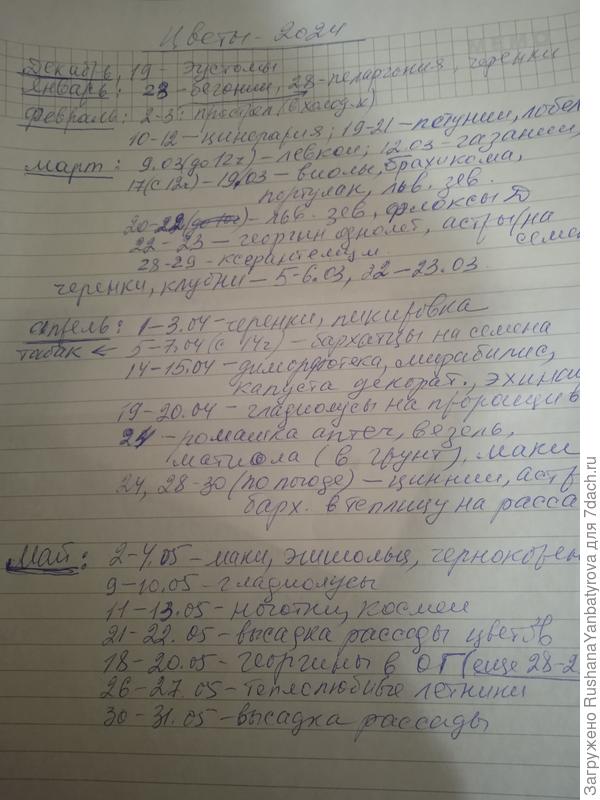 Цветы - 2024
Декабрь, 19 - Эустомы
Январь: 28 - бегонии, 28 - пеларгония, черенки
Февраль: 2-3: прострел (в холод.к)
10-12 - цинерария; 19-21 - петунии, лобел
Март: 9.03 (до 12ч) - левкои; 12.03 - газании,
17 (с 12ч) - 19.03 - виолы, брахикома,
портулак, льв. зев.
20-22 - льв. зев, флоксы D
22-23 - георгин однолет, астры/на
семе
28-29 - ксерантемум.
черенки, клубни - 5-6.03, 22-23.03.
Апрель: 1-3.04 - черенки, пикировка
табак ← 5-7.04 (с 14ч) - бархатцы на семена
14-15.04 - диморфотека, мирабилис,
капуста декорат., эхин
19-20.04 - гладиолусы на проращив
24 - ромашка аптеч, вязель,
матиола (в грунт), маки
24, 28-30 (по погоде) - циннии, астр
барх. в теплицу на расса
Май: 2-4.05 - маки, эшшольц, чернокор
9-10.05 - гладиолусы
11-13.05 - ноготки, космеи
21-22.05 - высадка рассады цветов
18-20.05 - георгины в ОГ (еще 28-2
26-27.05 - теплолюбивые летники
30-31.05 - высадка рассады
Загружено RushanaYanbatyrova для 7dach.ru